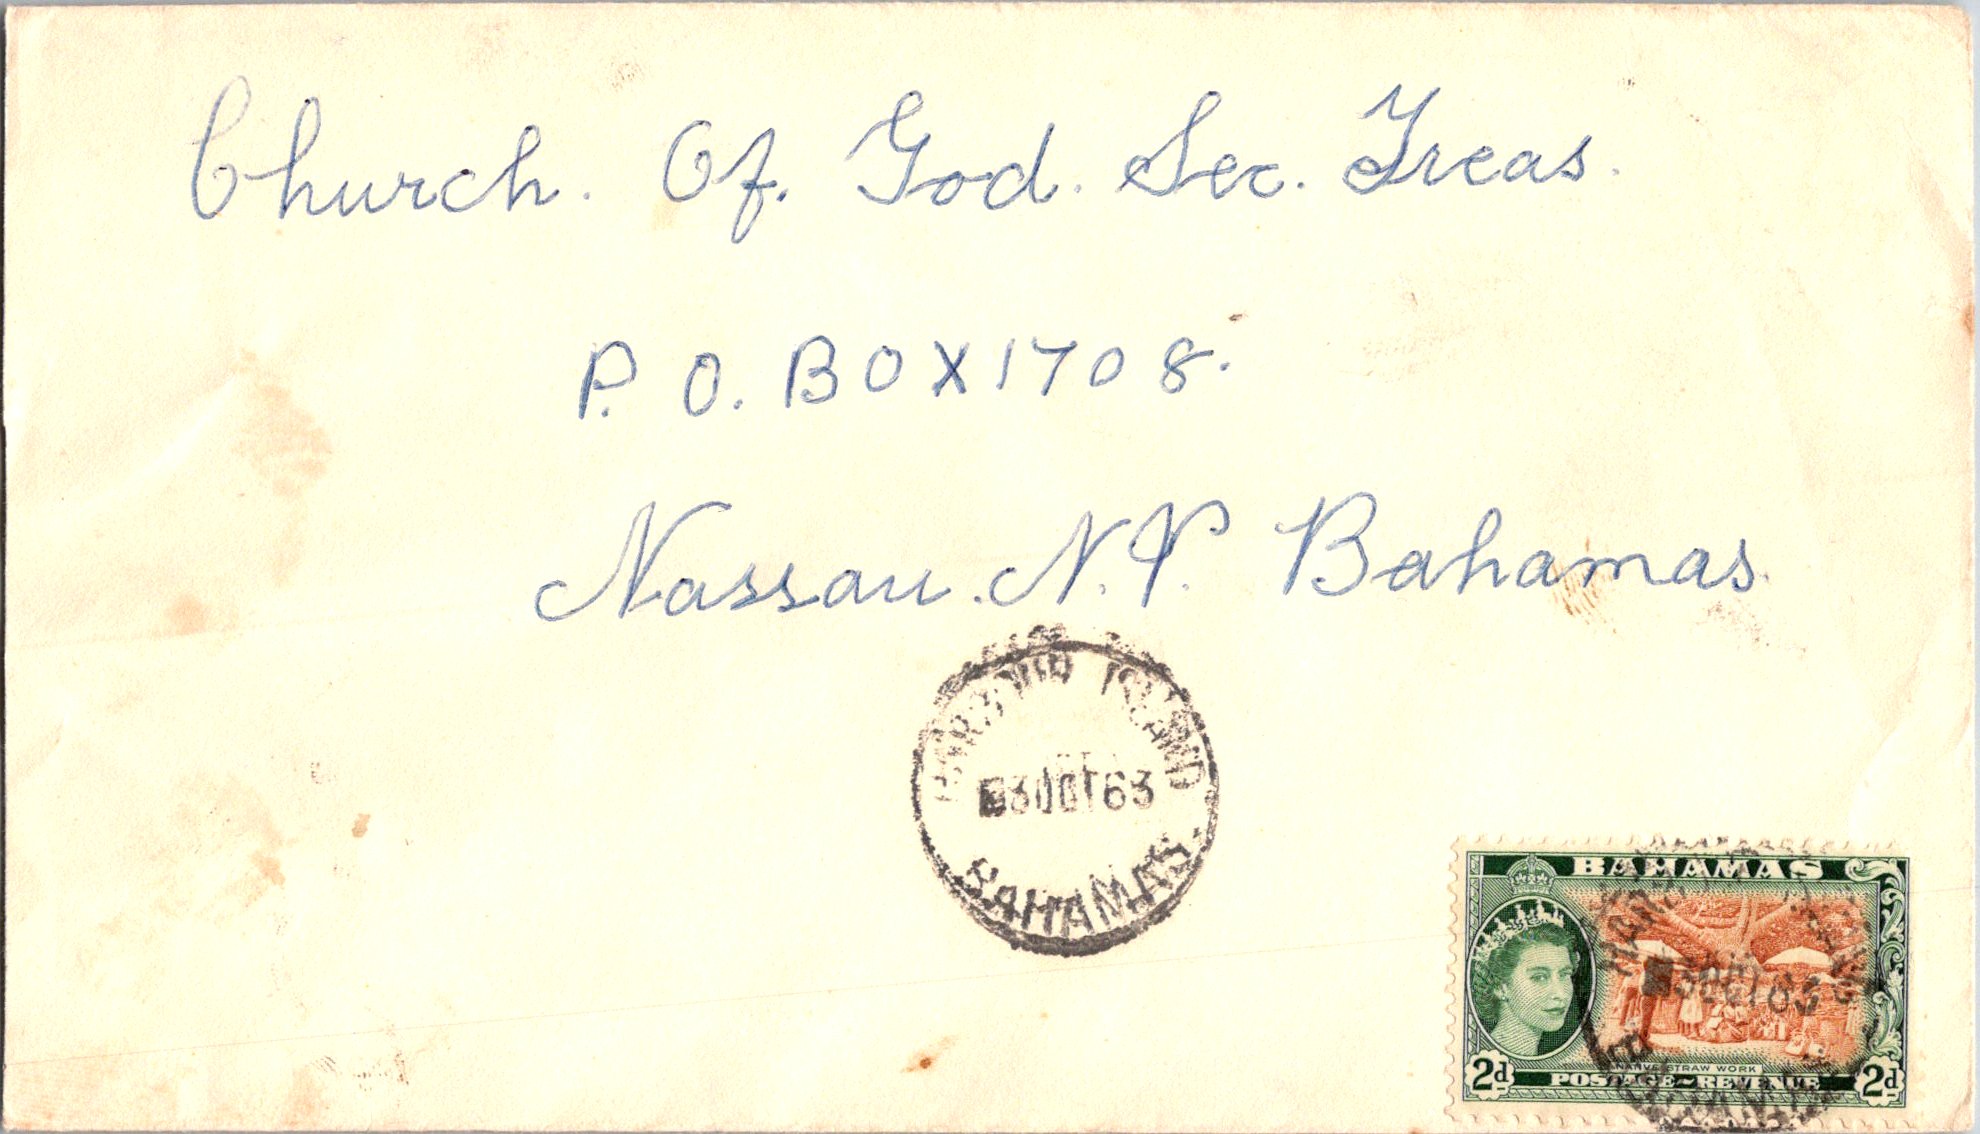 Church. Of. God. Sec. Treas.
P. O. BOX 1708.
Nassau. N. P. Bahamas.
HARBOUR ISLAND
3 OCT 63
BAHAMAS
BAHAMAS
2d NATIVE STRAW WORK 2d
POSTAGE REVENUE